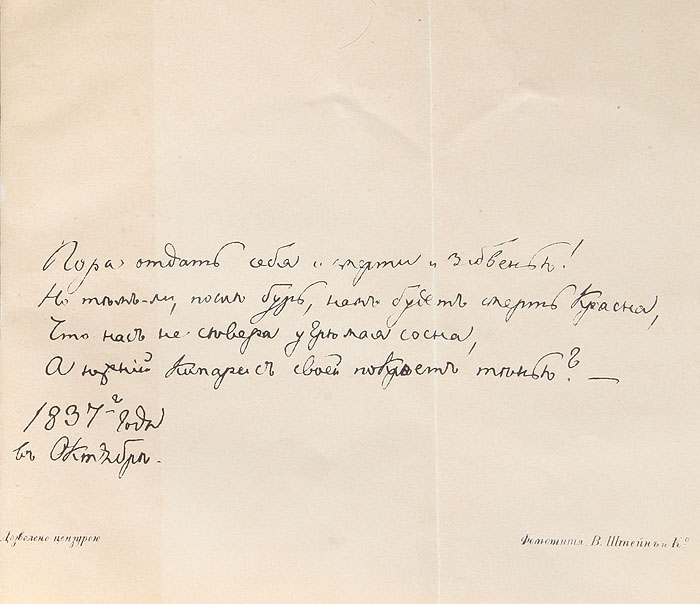 Пора отдать себя и смерти и забвенью!
Но тѣмъ-ли, послѣ бурь, намъ будетъ смерть красна,
Что насъ не сѣвера угрюмая сосна,
А южный кипарисъ своей покроетъ тѣнью? —
1837-г года
въ Октябрѣ.
Дозволено цензурою
Фототипія, В. Штейнъ и Кº